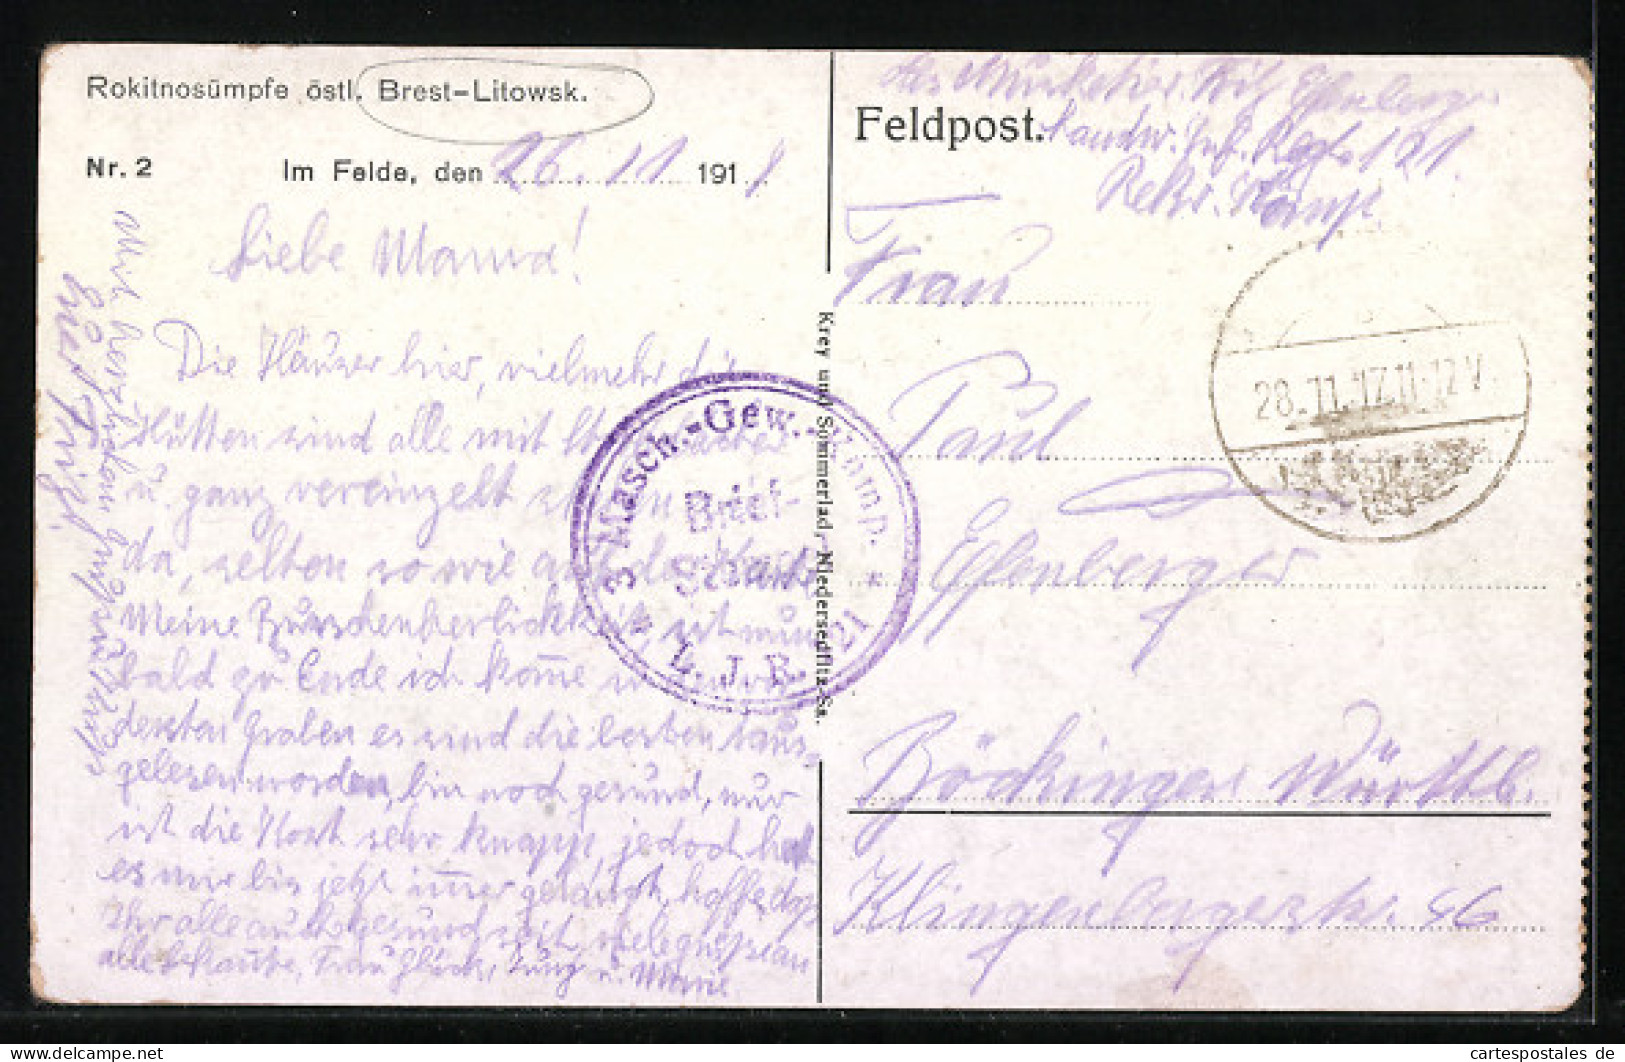 Rokitnosümpfe östl. Brest-Litowsk.
Nr. 2 Im Felde, den 26.11 191
Liebe Mama!
Die Häuser hier, vielmehr die
Hütten sind alle mit
u. ganz vereinzelt
da, selten so wie auf
Meine Burschenherlichkeit ist nun
bald zu Ende ich kom̅e in den vor
dersten Graben es sind die besten raus-
gelesen worden, bin noch gesund, nur
ist die Kost sehr knapp, jedoch hat
es mir bis jetzt im̅er gelangt, hoffe, daß
Ihr alle auch gesund seit, viele grüße an
alle bekannte, Frau Glück, u. Marie.
Euer Fritz.
Krey und Sommerlad, Niedersedlitz-Sa.
3 Masch.-Gew.-Komp.
Brief-
L. J. R. 121
Feldpost.
Abs. Musketier Fritz Essenberger
Landw. Inf. Regt. 121.
Rekr. Komp.
Frau
Paul
Essenberger
Böckingen Württb.
Klingenbergerstr.
28.11.17.11-12V
cartespostales de
cartespostales.de